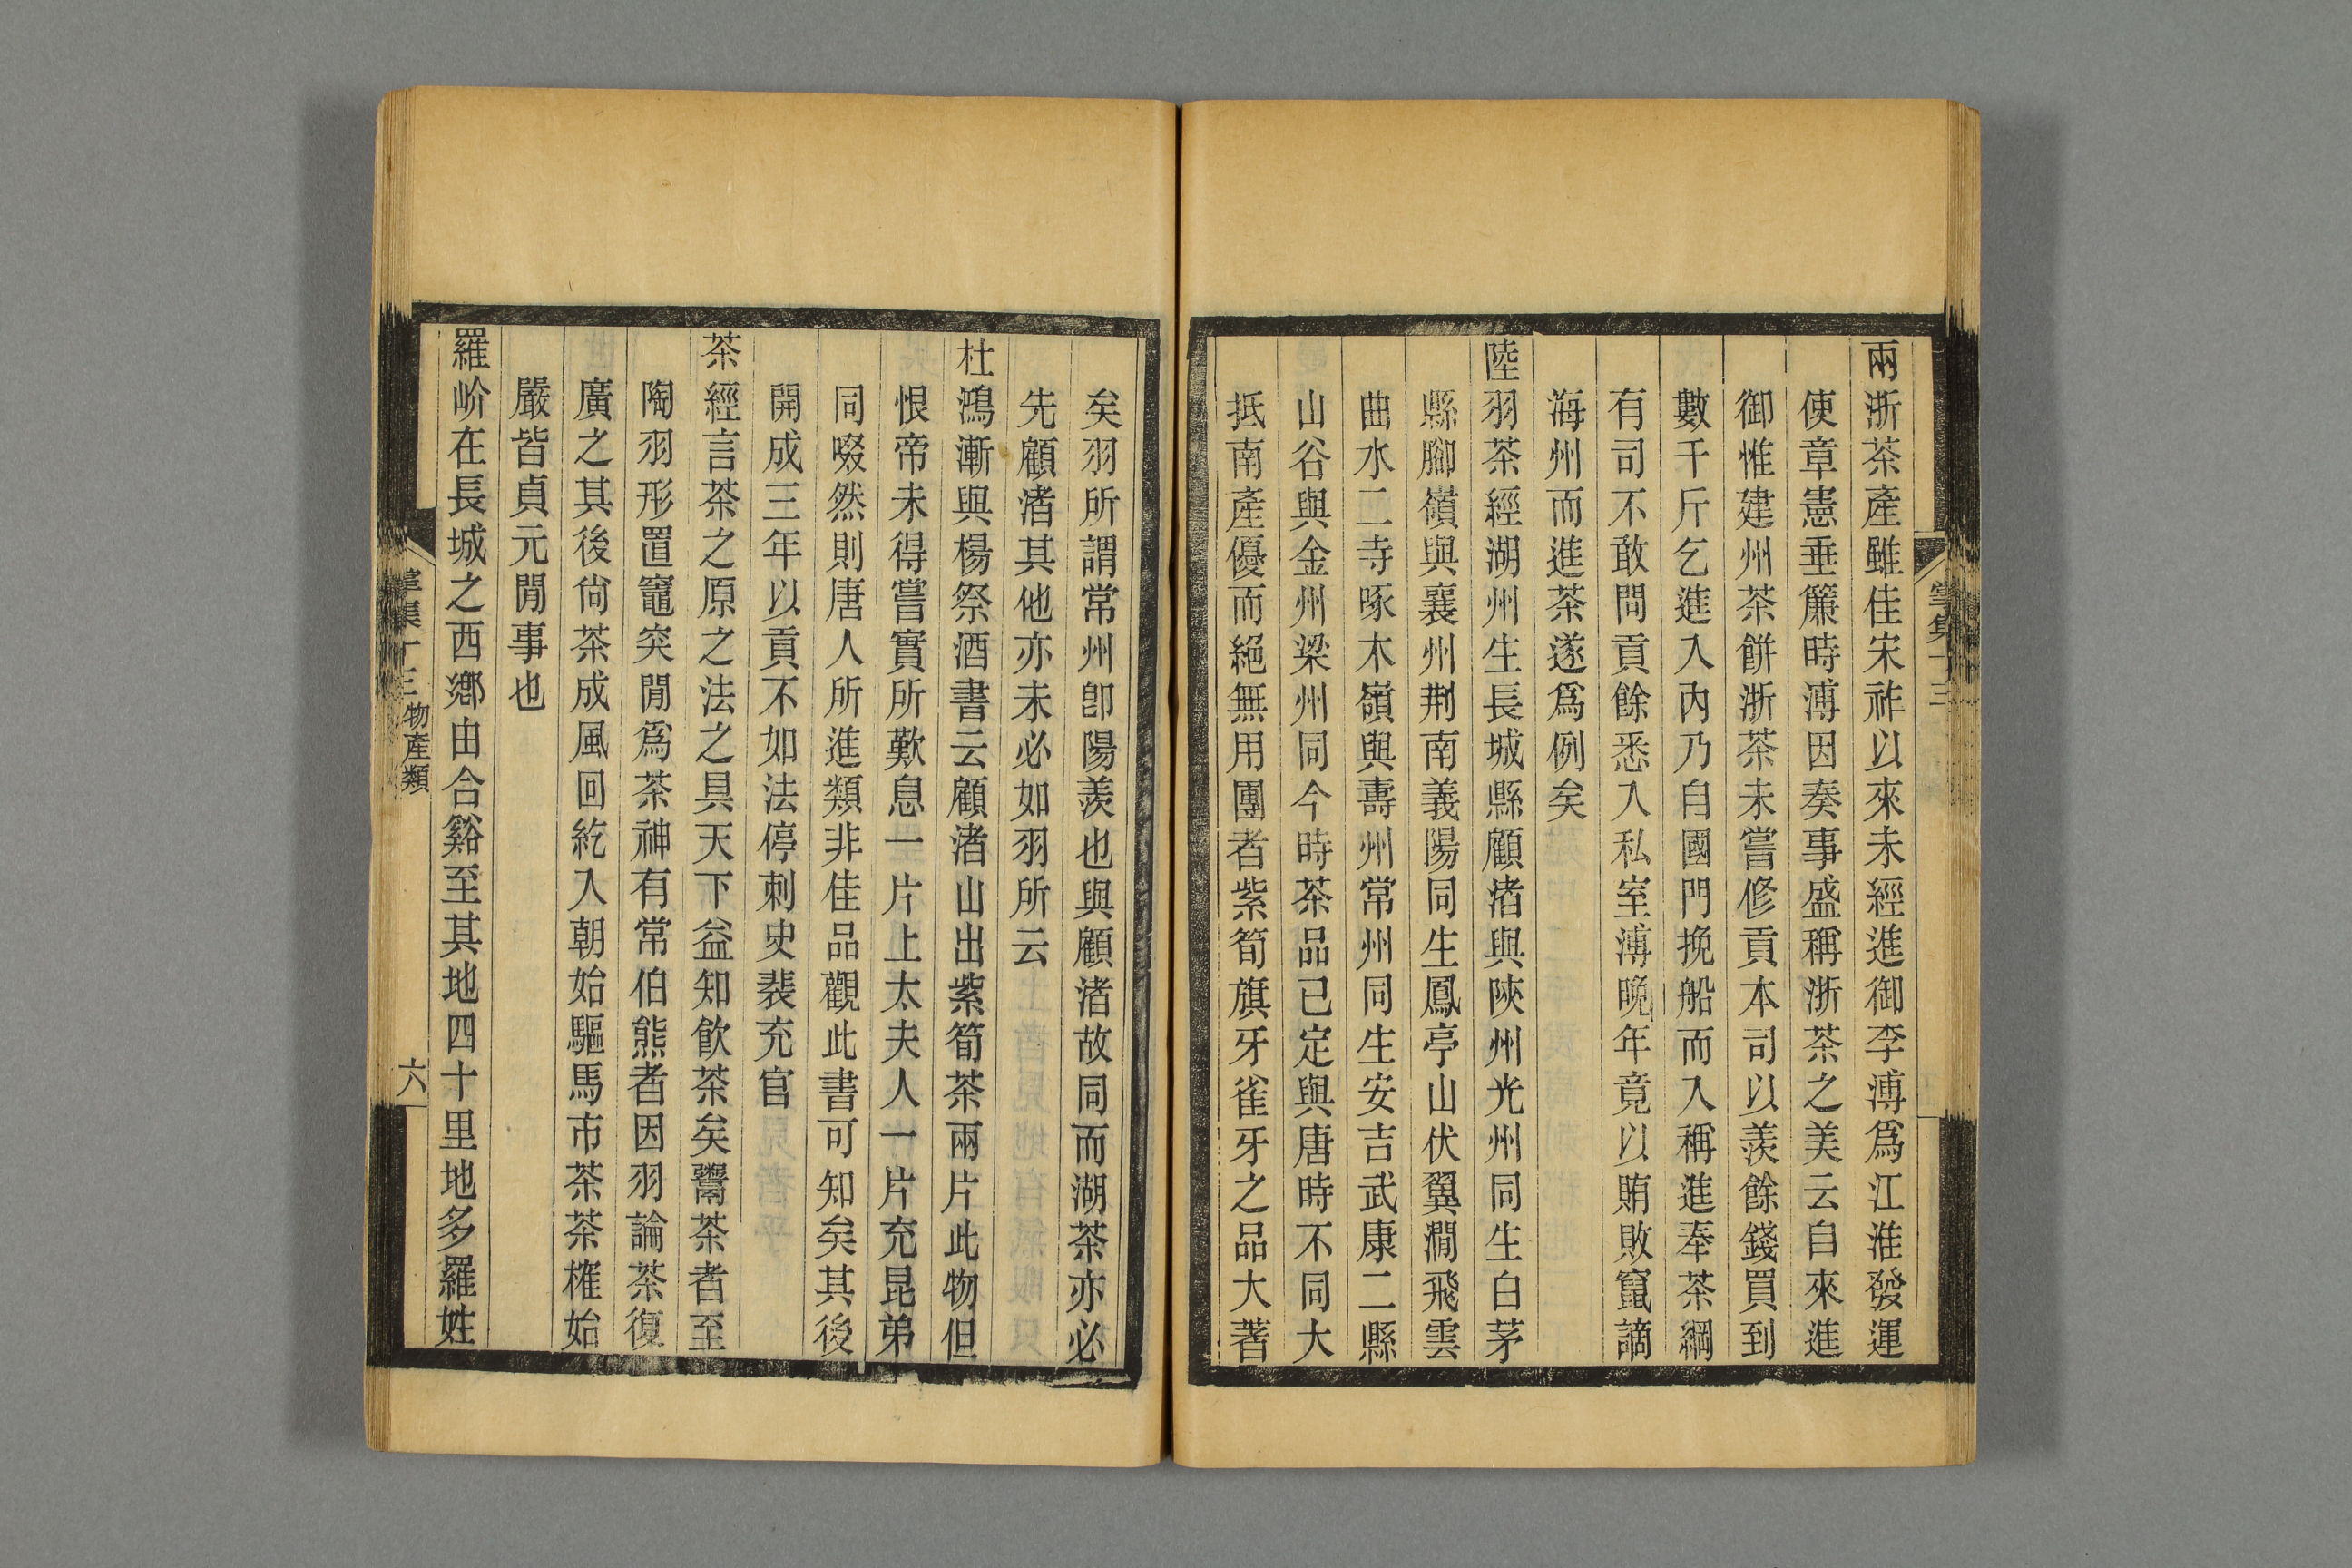 兩浙茶產雖佳宋祚以來未經進御李溥爲江淮發運
使章憲垂簾時溥因奏事盛稱浙茶之美云自來進
御惟建州茶餅浙茶未嘗修貢本司以羨餘錢買到
數千斤乞進入內乃自國門挽船而入稱進奉茶綱
有司不敢問貢餘悉入私室溥晚年竟以賄敗竄謫
海州而進茶遂爲例矣
陸羽茶經湖州生長城縣顧渚與陝州光州同生白茅
縣腳嶺與襄州荆南義陽同生鳳亭山伏翼澗飛雲
曲水二寺啄木嶺與壽州常州同生安吉武康二縣
山谷與金州梁州同今時茶品已定與唐時不同大
抵南產優而絕無用團者紫筍旗牙雀牙之品大著
矣羽所謂常州卽陽羨也與顧渚故同而湖茶亦必
先顧渚其他亦未必如羽所云
杜鴻漸與楊祭酒書云顧渚山出紫筍茶兩片此物但
恨帝未得嘗實所歎息一片上太夫人一片充昆弟
同啜然則唐人所進類非佳品觀此書可知矣其後
開成三年以貢不如法停刺史裴充官
茶經言茶之原之法之具天下益知飮茶矣鬻茶者至
陶羽形置竈突閒爲茶神有常伯熊者因羽論茶復
廣之其後尙茶成風回紇入朝始驅馬市茶茶榷始
嚴皆貞元閒事也
羅岕在長城之西鄕由合谿至其地四十里地多羅姓
集十三 物產類
六